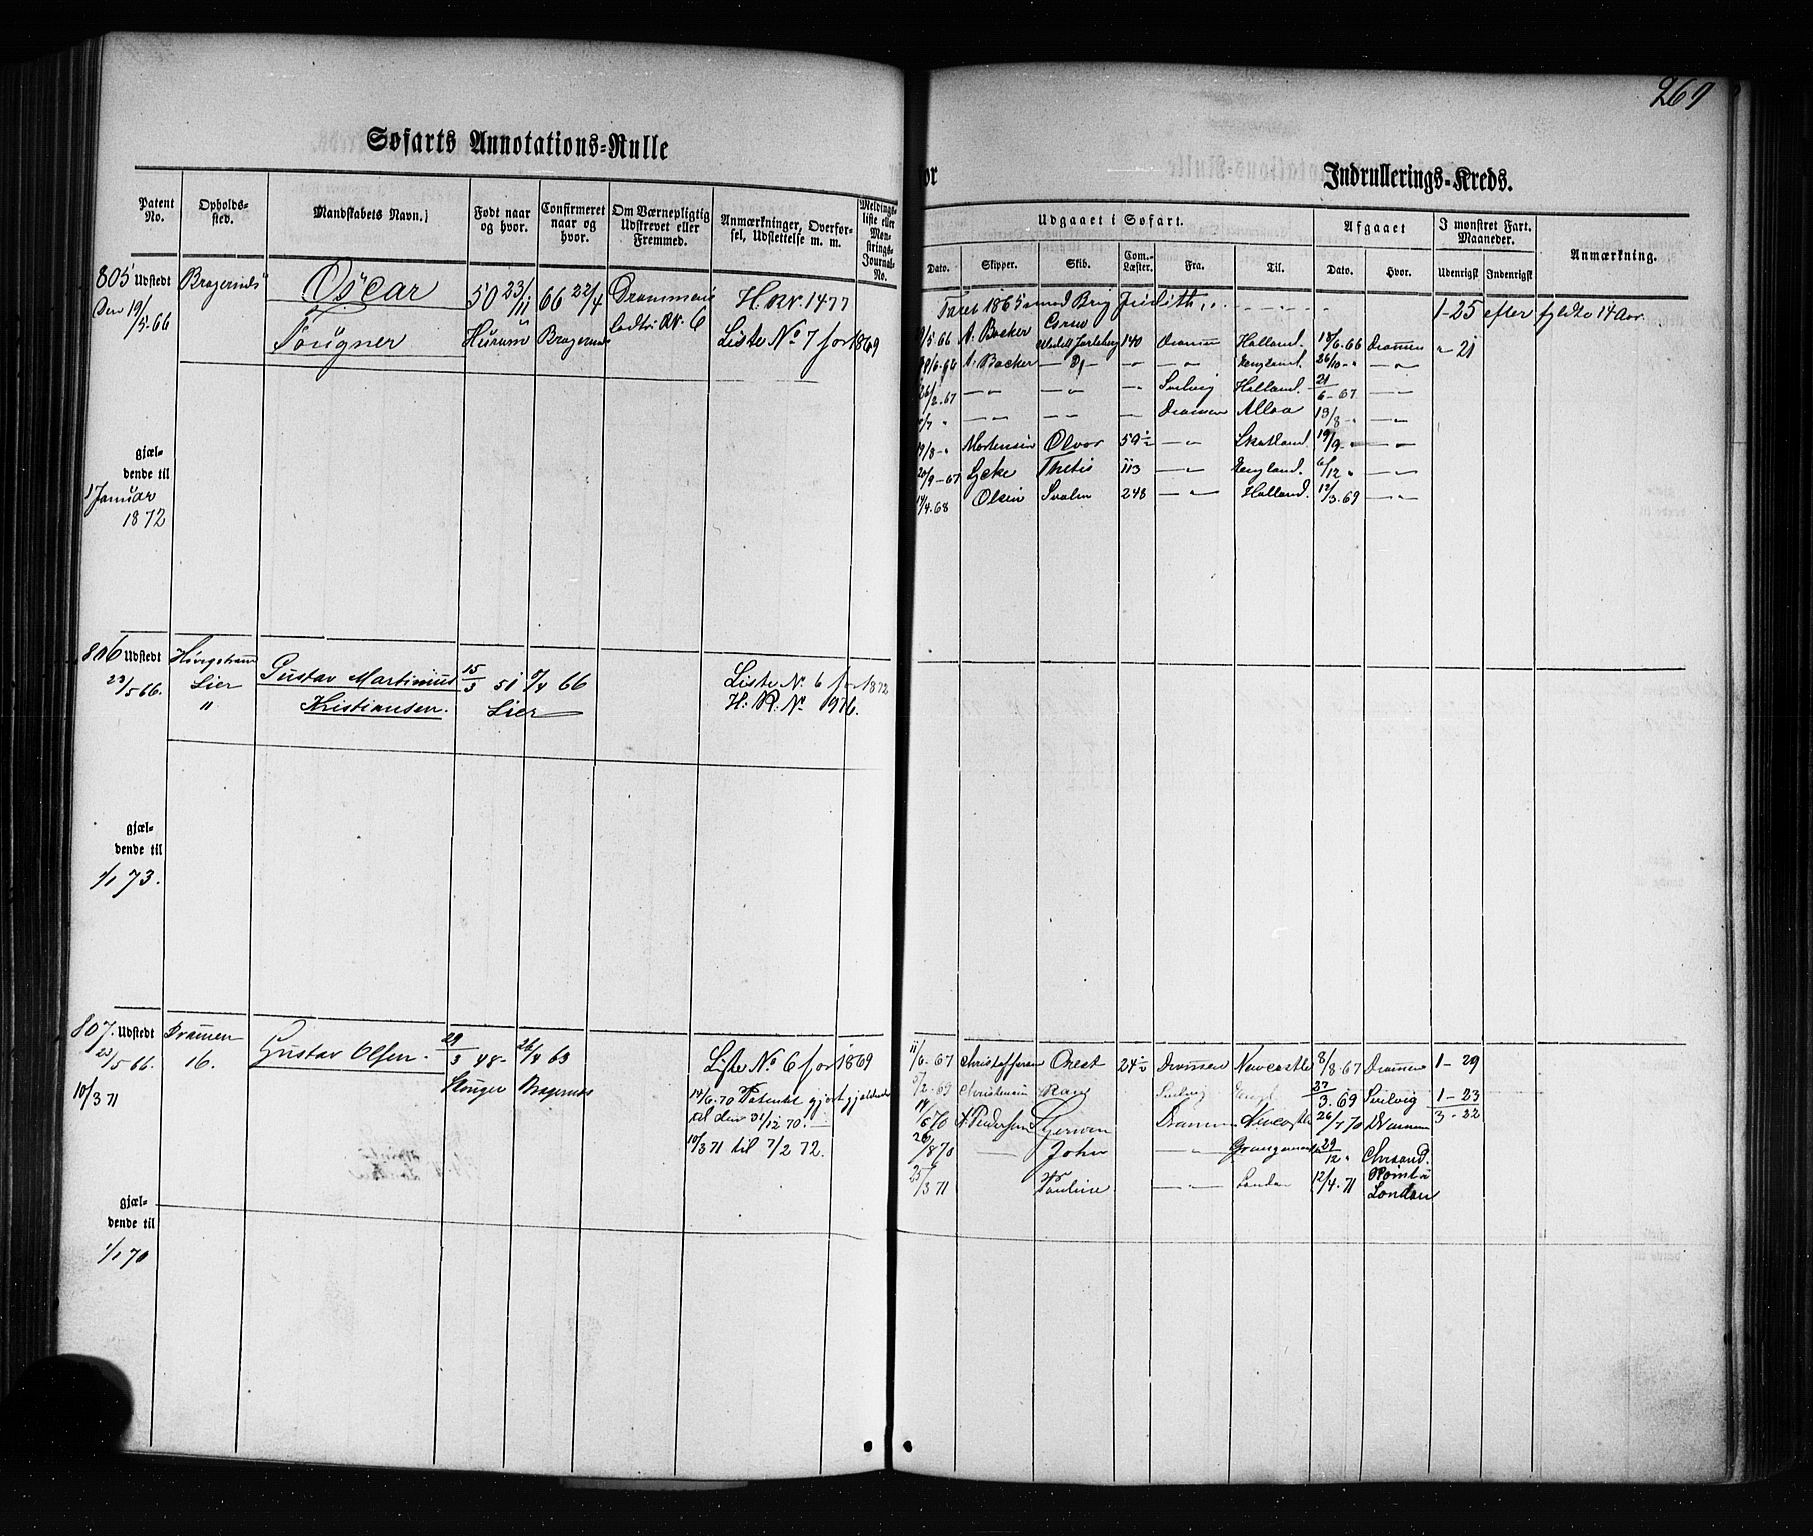 269
Søfarts Annotations-Rulle
for
Indrullerings-Kreds.
Patent No.
Opholds-sted.
Mandskabets Navn.
Født naar og hvor.
Confirmeret naar og hvor.
Om Værnepligtig Udskrevet eller Fremmed.
Anmærkninger, Overførsel, Udslettelse m. m.
Meldings-liste eller Mønstrings-Journal-No.
Udgaaet i Søfart.
Afgaaet
I mønstret Fart. Maaneder.
Anmærkning.
Dato. Skipper. Skib. Com.-Læster. Fra. Til. Dato. Hvor. Udenrigst Indenrigst
805 Udstedt Bragernæs Oscar 50 23/11 66 22/4 Drammens H. RN. 1477
Den 19/5-66 Fougner Hurum Bragernæs RN. 6 Liste No 7 for 1869
gjældende til
1 Januar
1872
Faret 1865 med Brig Judith 1-25 efter fyldte 14 Aar.
19/5 66 A. Backer Wedel Jarlsberg 140 Dramen Holland. 18/6.66 Dramen " 21
A. Backer — Do — — " — — " — England. 26/10 - " — " —
26/2.67 — " — — " — — " — Svelvig Holland. 21/6-67 — " —
— " — — " — Dramen Alloa 13/8 - "
19/8 - " Mortensen Olvor 59½ — " — Skotland. 19/9 — " —
20/9-67 Lycke Thetis 113 — " — England. 6/12 " — " —
14/4.68 Olsen Svalen 248 — " — Holland. 12/3.69 — " —
806 Udstedt
23/5 66. Lier Gustav Martinius 15/3 51 66 Liste No 6 for 1872
" Kristiansen. Lier H: R: No 976.
gjældende til
1/1 73.
807. Udstedt Dramen Gustav Olsen. 29/3 48- 26/4 63 Liste No 6 for 1869
23/5 66. 16. Bragernæs
10/3 71
14/6.70 Patentet gjort gjældende
til den 31/12 70.
10/3 71 til 7/2 72.
gjældende til
1/1 70
11/6-67 Christoffersen Orest 24½ Dramen Newcastle 8/8.67 Dramen 1-29
5/2-69 Christensen Ran Svelvig Engl 27/3.69 Svelvig 1-23
14/6 70 A. Pedersen Dramen Newcastle 26/7 70 Dramen 3-22
26/8 70 — John — " — 29/12 " Chrsand.
25/3 71 Pauline. — " — London 12/4.71 Rømt i London